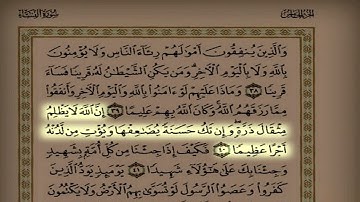 الجزء الخامس
سورة النساء
وَالَّذِينَ يُنفِقُونَ أَمْوَٰلَهُمْ رِئَآءَ النَّاسِ وَلَا يُؤْمِنُونَ
بِاللَّهِ وَلَا بِالْيَوْمِ الْآخِرِ وَمَن يَكُنِ الشَّيْطَٰنُ لَهُۥ قَرِينًا فَسَآءَ
قَرِينًا ٣٨ وَمَاذَا عَلَيْهِمْ لَوْ ءَامَنُوا بِاللَّهِ وَالْيَوْمِ الْآخِرِ وَأَنفَقُوا
مِمَّا رَزَقَهُمُ اللَّهُ وَكَانَ اللَّهُ بِهِمْ عَلِيمًا ٣٩ إِنَّ اللَّهَ لَا يَظْلِمُ
مِثْقَالَ ذَرَّةٍ وَإِن تَكُ حَسَنَةً يُضَٰعِفْهَا وَيُؤْتِ مِن لَّدُنْهُ
أَجْرًا عَظِيمًا ٤٠ فَكَيْفَ إِذَا جِئْنَا مِن كُلِّ أُمَّةٍ بِشَهِيدٍ
وَجِئْنَا بِكَ عَلَىٰ هَٰٓؤُلَآءِ شَهِيدًا ٤١ يَوْمَئِذٍ يَوَدُّ الَّذِينَ
كَفَرُوا وَعَصَوُا الرَّسُولَ لَوْ تُسَوَّىٰ بِهِمُ الْأَرْضُ وَلَا يَكْتُمُونَ